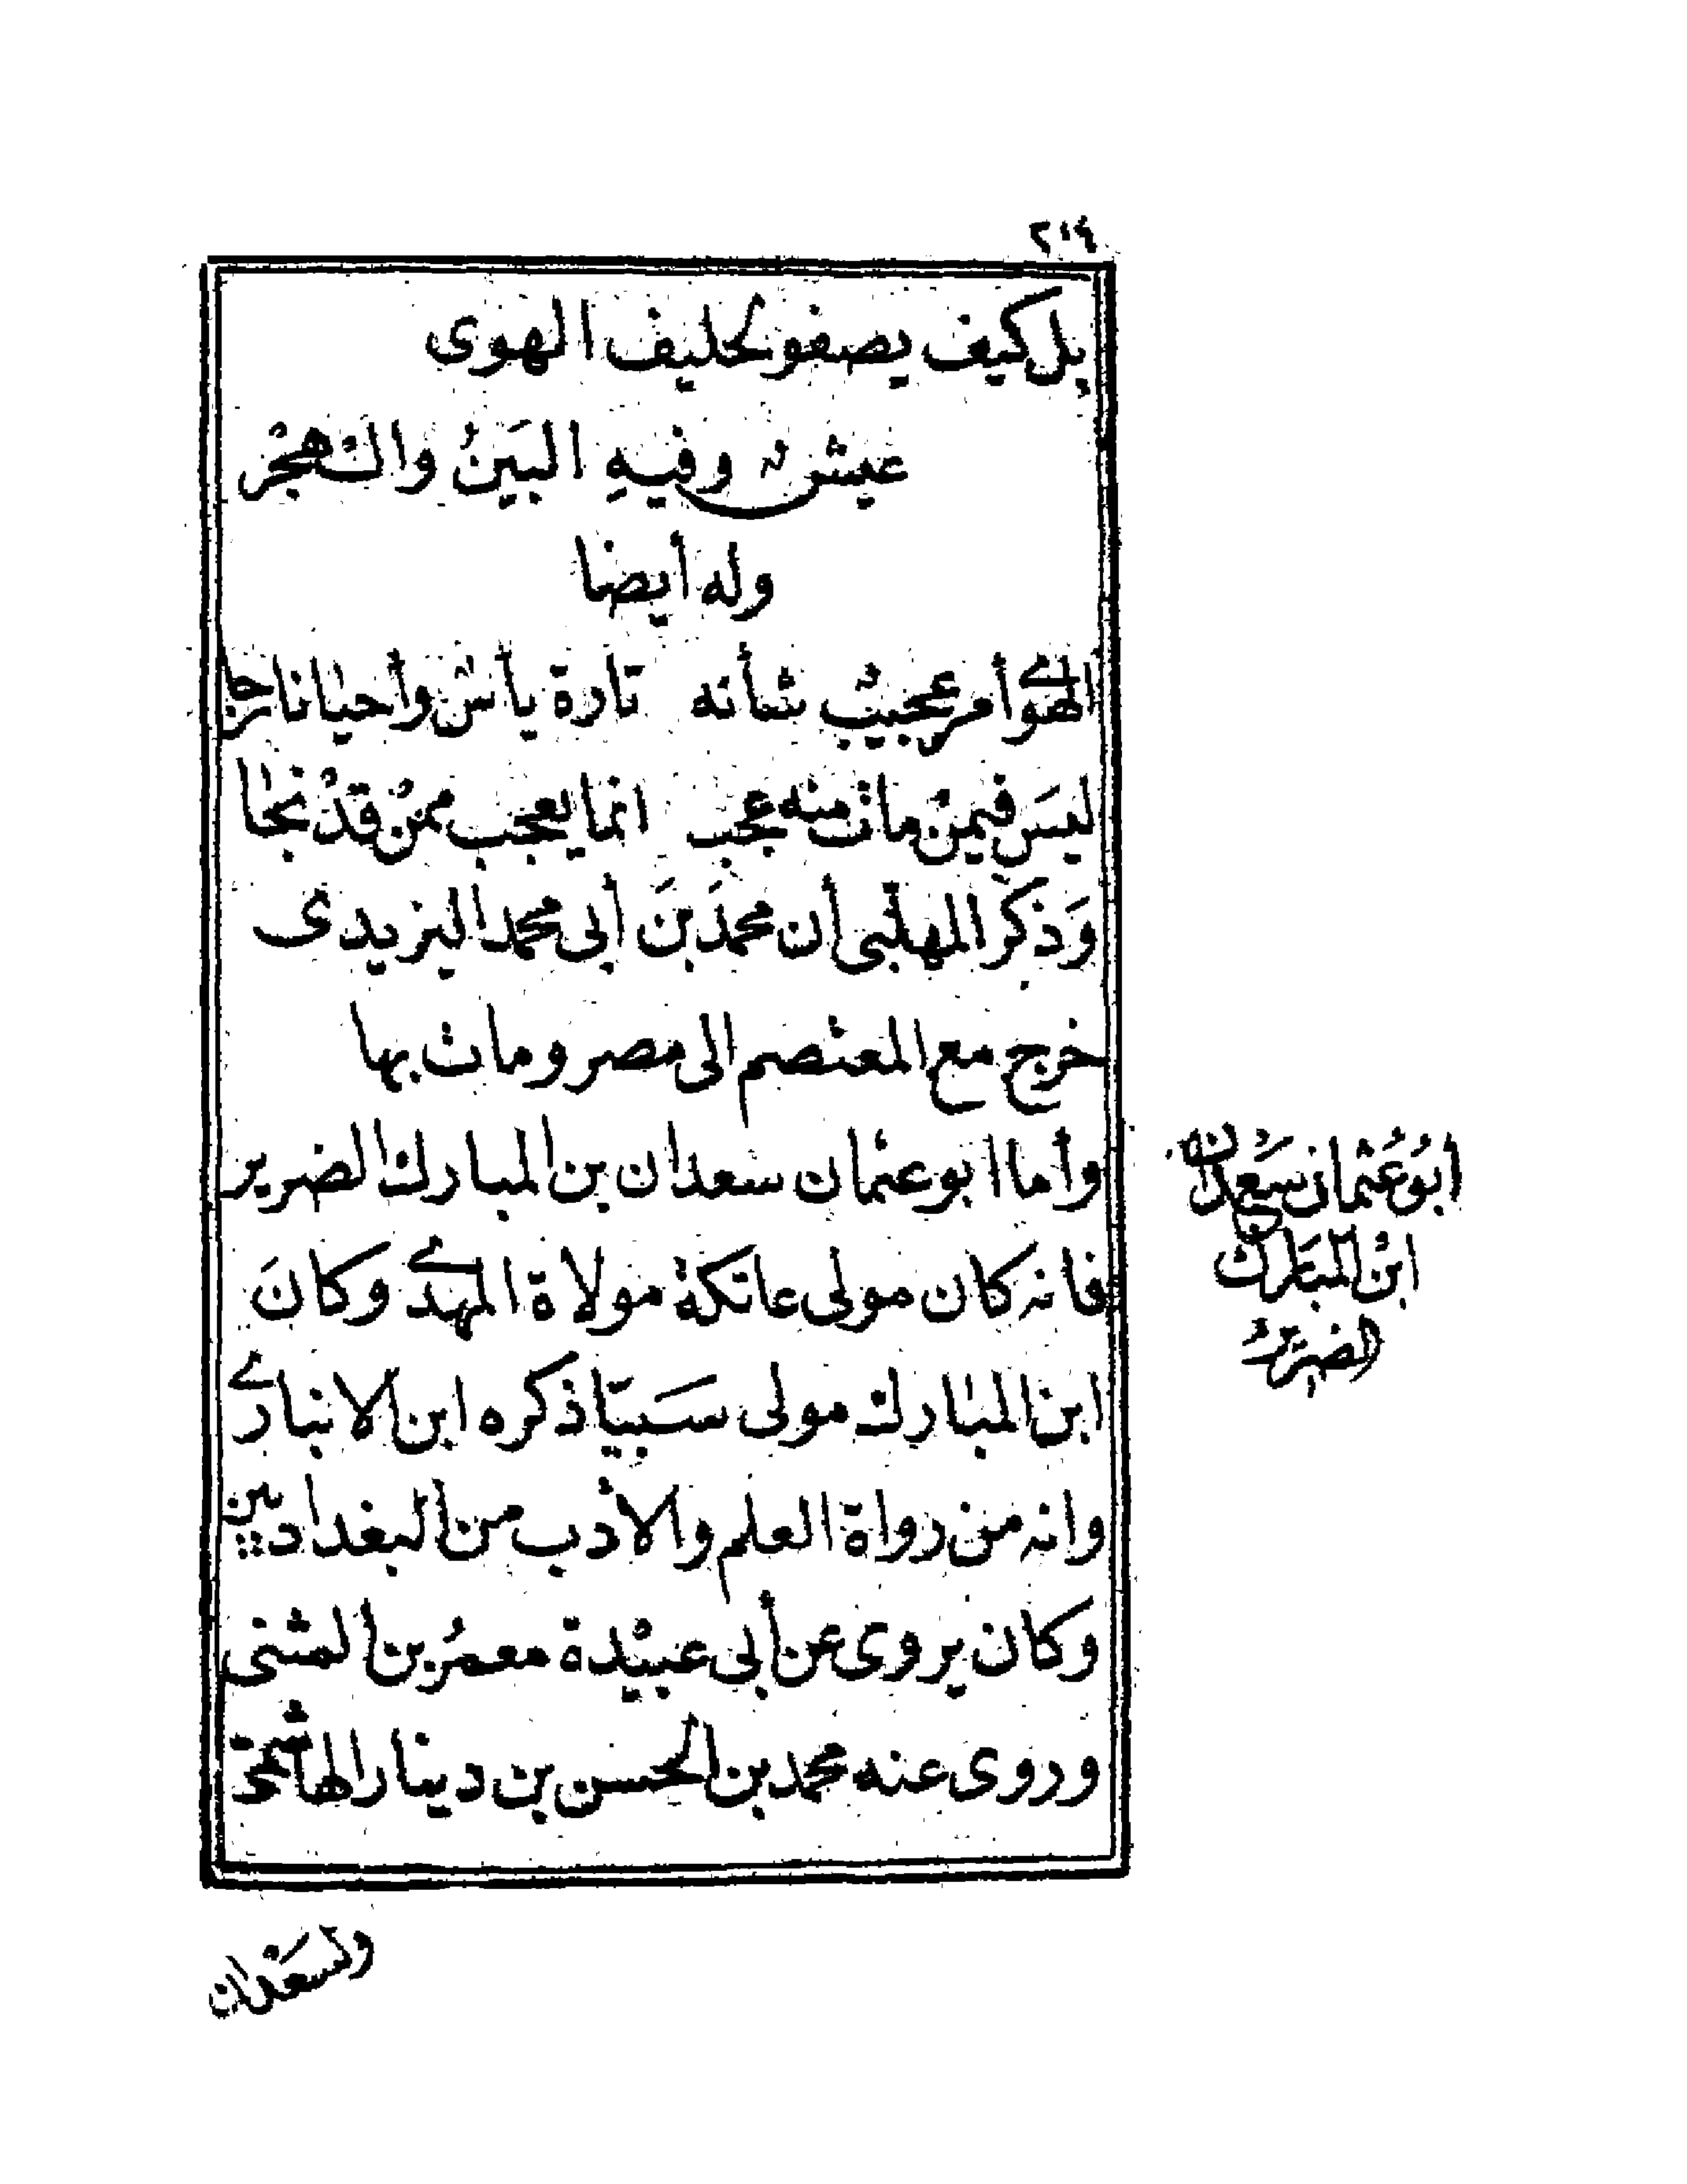 ٢١٩
بل كيف يصفو لحليف الهوى
عيش وفيهِ البَينُ والهجْر
وله أيضا
الهوى أمر عجيبٌ شأنه تارة يأس وأحيانا رجا
ليسَ فيمنْ مات منه عجب انما يعجب ممنْ قدْ نجا
وَذكرَ المهلبى أن محمدَ بنَ أبى محمد اليزيدى
خرج مع المعتصم الى مصر ومات بها
وأما ابو عثمان سعدان بن المبارك الضرير
فانه كان مولى عاتكة مولاة المهدى وكانَ
ابن المبارك مولى سَبيّا ذكره ابن الانبارى
وانه من رواة العلم والأدب من البغداديين
وكان يروى عن أبى عبيْدة معمرُ بن المثنى
وروى عنه محمد بن الحسن بن دينار الهاشمى
أبوُ عَثمان سَعدان
ابنُ المبَارك
الضريرُ
ولسَعْدان